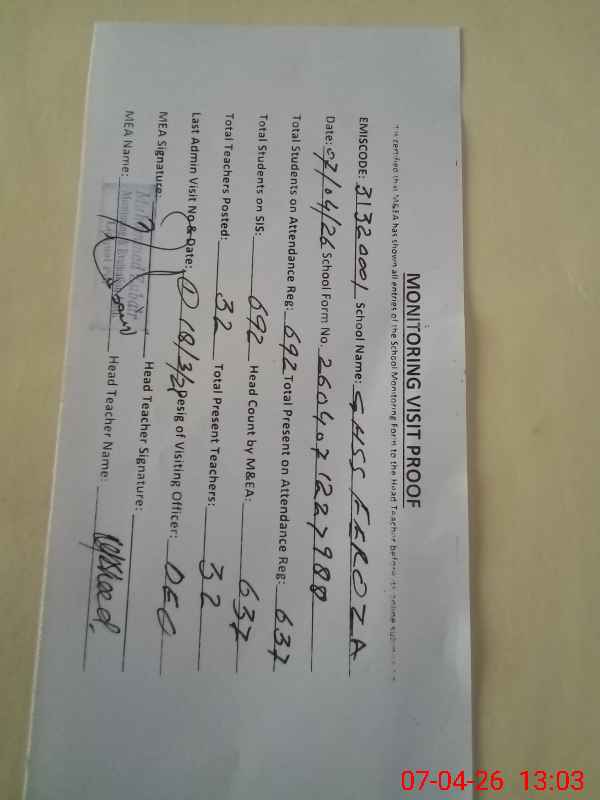 MONITORING VISIT PROOF
It is certified that M&EA has shown all entries of the School Monitoring Form to the Head Teacher before its online
EMISCODE: 31320001 School Name: GHSS FEROZA
Date: 07/04/26 School Form No. 2604071227988
Total Students on Attendance Reg: 692 Total Present on Attendance Reg: 637
Total Students on SIS: 692 Head Count by M&EA: 637
Total Teachers Posted: 32 Total Present Teachers: 32
Last Admin Visit No & Date: 18/3/26 Desig of Visiting Officer: DEO
MEA Signature: Head Teacher Signature:
MEA Name: Head Teacher Name:
07-04-26 13:03